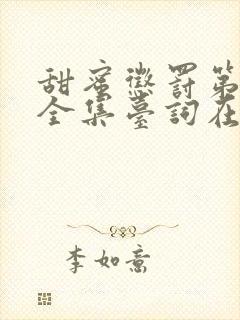 甜蜜懲罰第
全集臺詞在
李如意